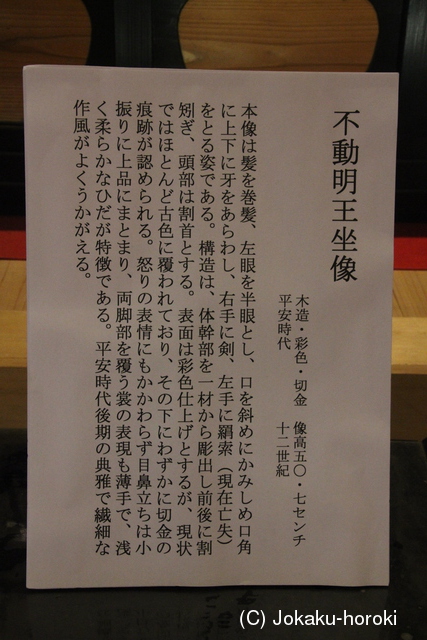 不動明王坐像
木造・彩色・切金　像高五〇・七センチ
平安時代　　十二世紀
本像は髪を巻髪、左眼を半眼とし、口を斜めにかみしめ口角
に上下に牙をあらわし、右手に剣、左手に羂索（現在亡失）
をとる姿である。構造は、体幹部を一材から彫出し前後に割
矧ぎ、頭部は割首とする。表面は彩色仕上げとするが、現状
ではほとんど古色に覆われており、その下にわずかに切金の
痕跡が認められる。怒りの表情にもかかわらず目鼻立ちは小
振りに上品にまとまり、両脚部を覆う裳の表現も薄手で、浅
く柔らかなひだが特徴である。平安時代後期の典雅で繊細な
作風がよくうかがえる。
(C) Jokaku-horoki